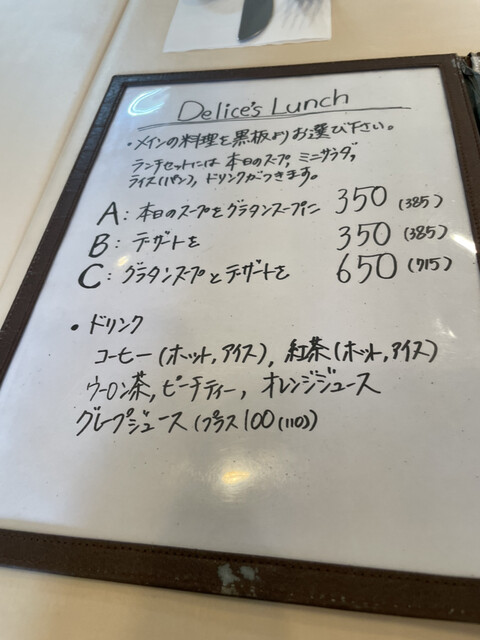 Delice's Lunch
・メインの料理を黒板よりお選び下さい。
ランチセットには 本日のスープ, ミニサラダ,
ライス(パン), ドリンクがつきます。
A: 本日のスープをグラタンスープに 350 (385)
B: デザートを 350 (385)
C: グラタンスープとデザートを 650 (715)
・ドリンク
コーヒー(ホット, アイス), 紅茶(ホット, アイス)
ウーロン茶, ピーチティー, オレンジジュース
グレープジュース (プラス100(110))